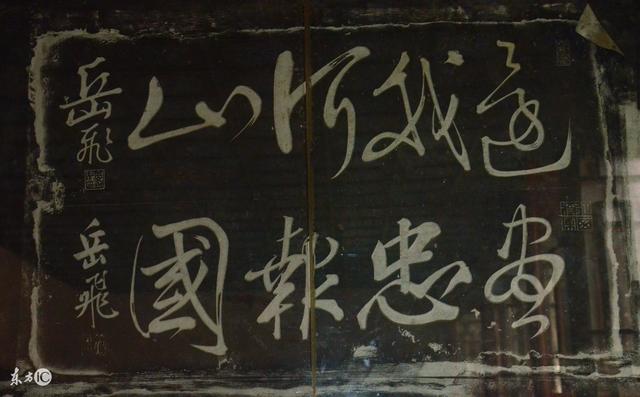 還我河山
岳飛
盡忠報國
岳飛
东方IC